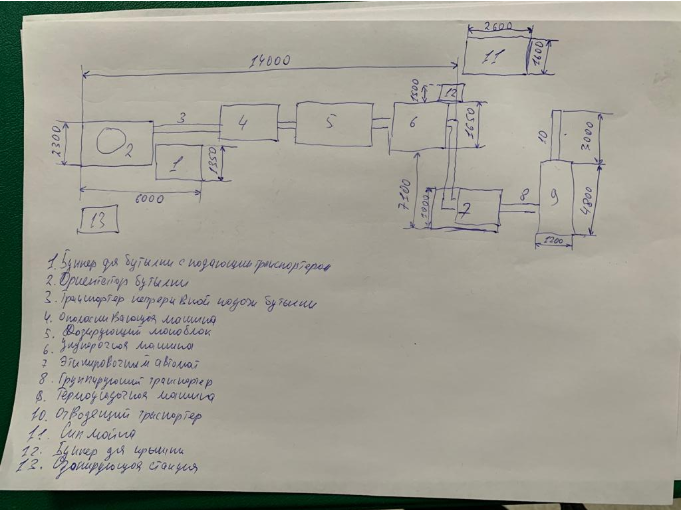 2600
11
1600
14000
1500
12
3
4
5
6
1650
10
3000
2300
2
1
1350
6000
7100
1000
7
8
9
4800
1200
13
1. Бункер для бутылки с подающим транспортером
2. Ориентатор бутылки
3. Транспортер непрерывной подачи бутылки
4. Ополаскивающая машина
5. Дозирующий моноблок
6. Укупорочная машина
7 Этикировочный автомат
8. Группирующий транспортер
9. Термоусадочная машина
10. Отводящий транспортер
11. Сип мойка
12. Бункер для крышки
13. Озонирующая станция